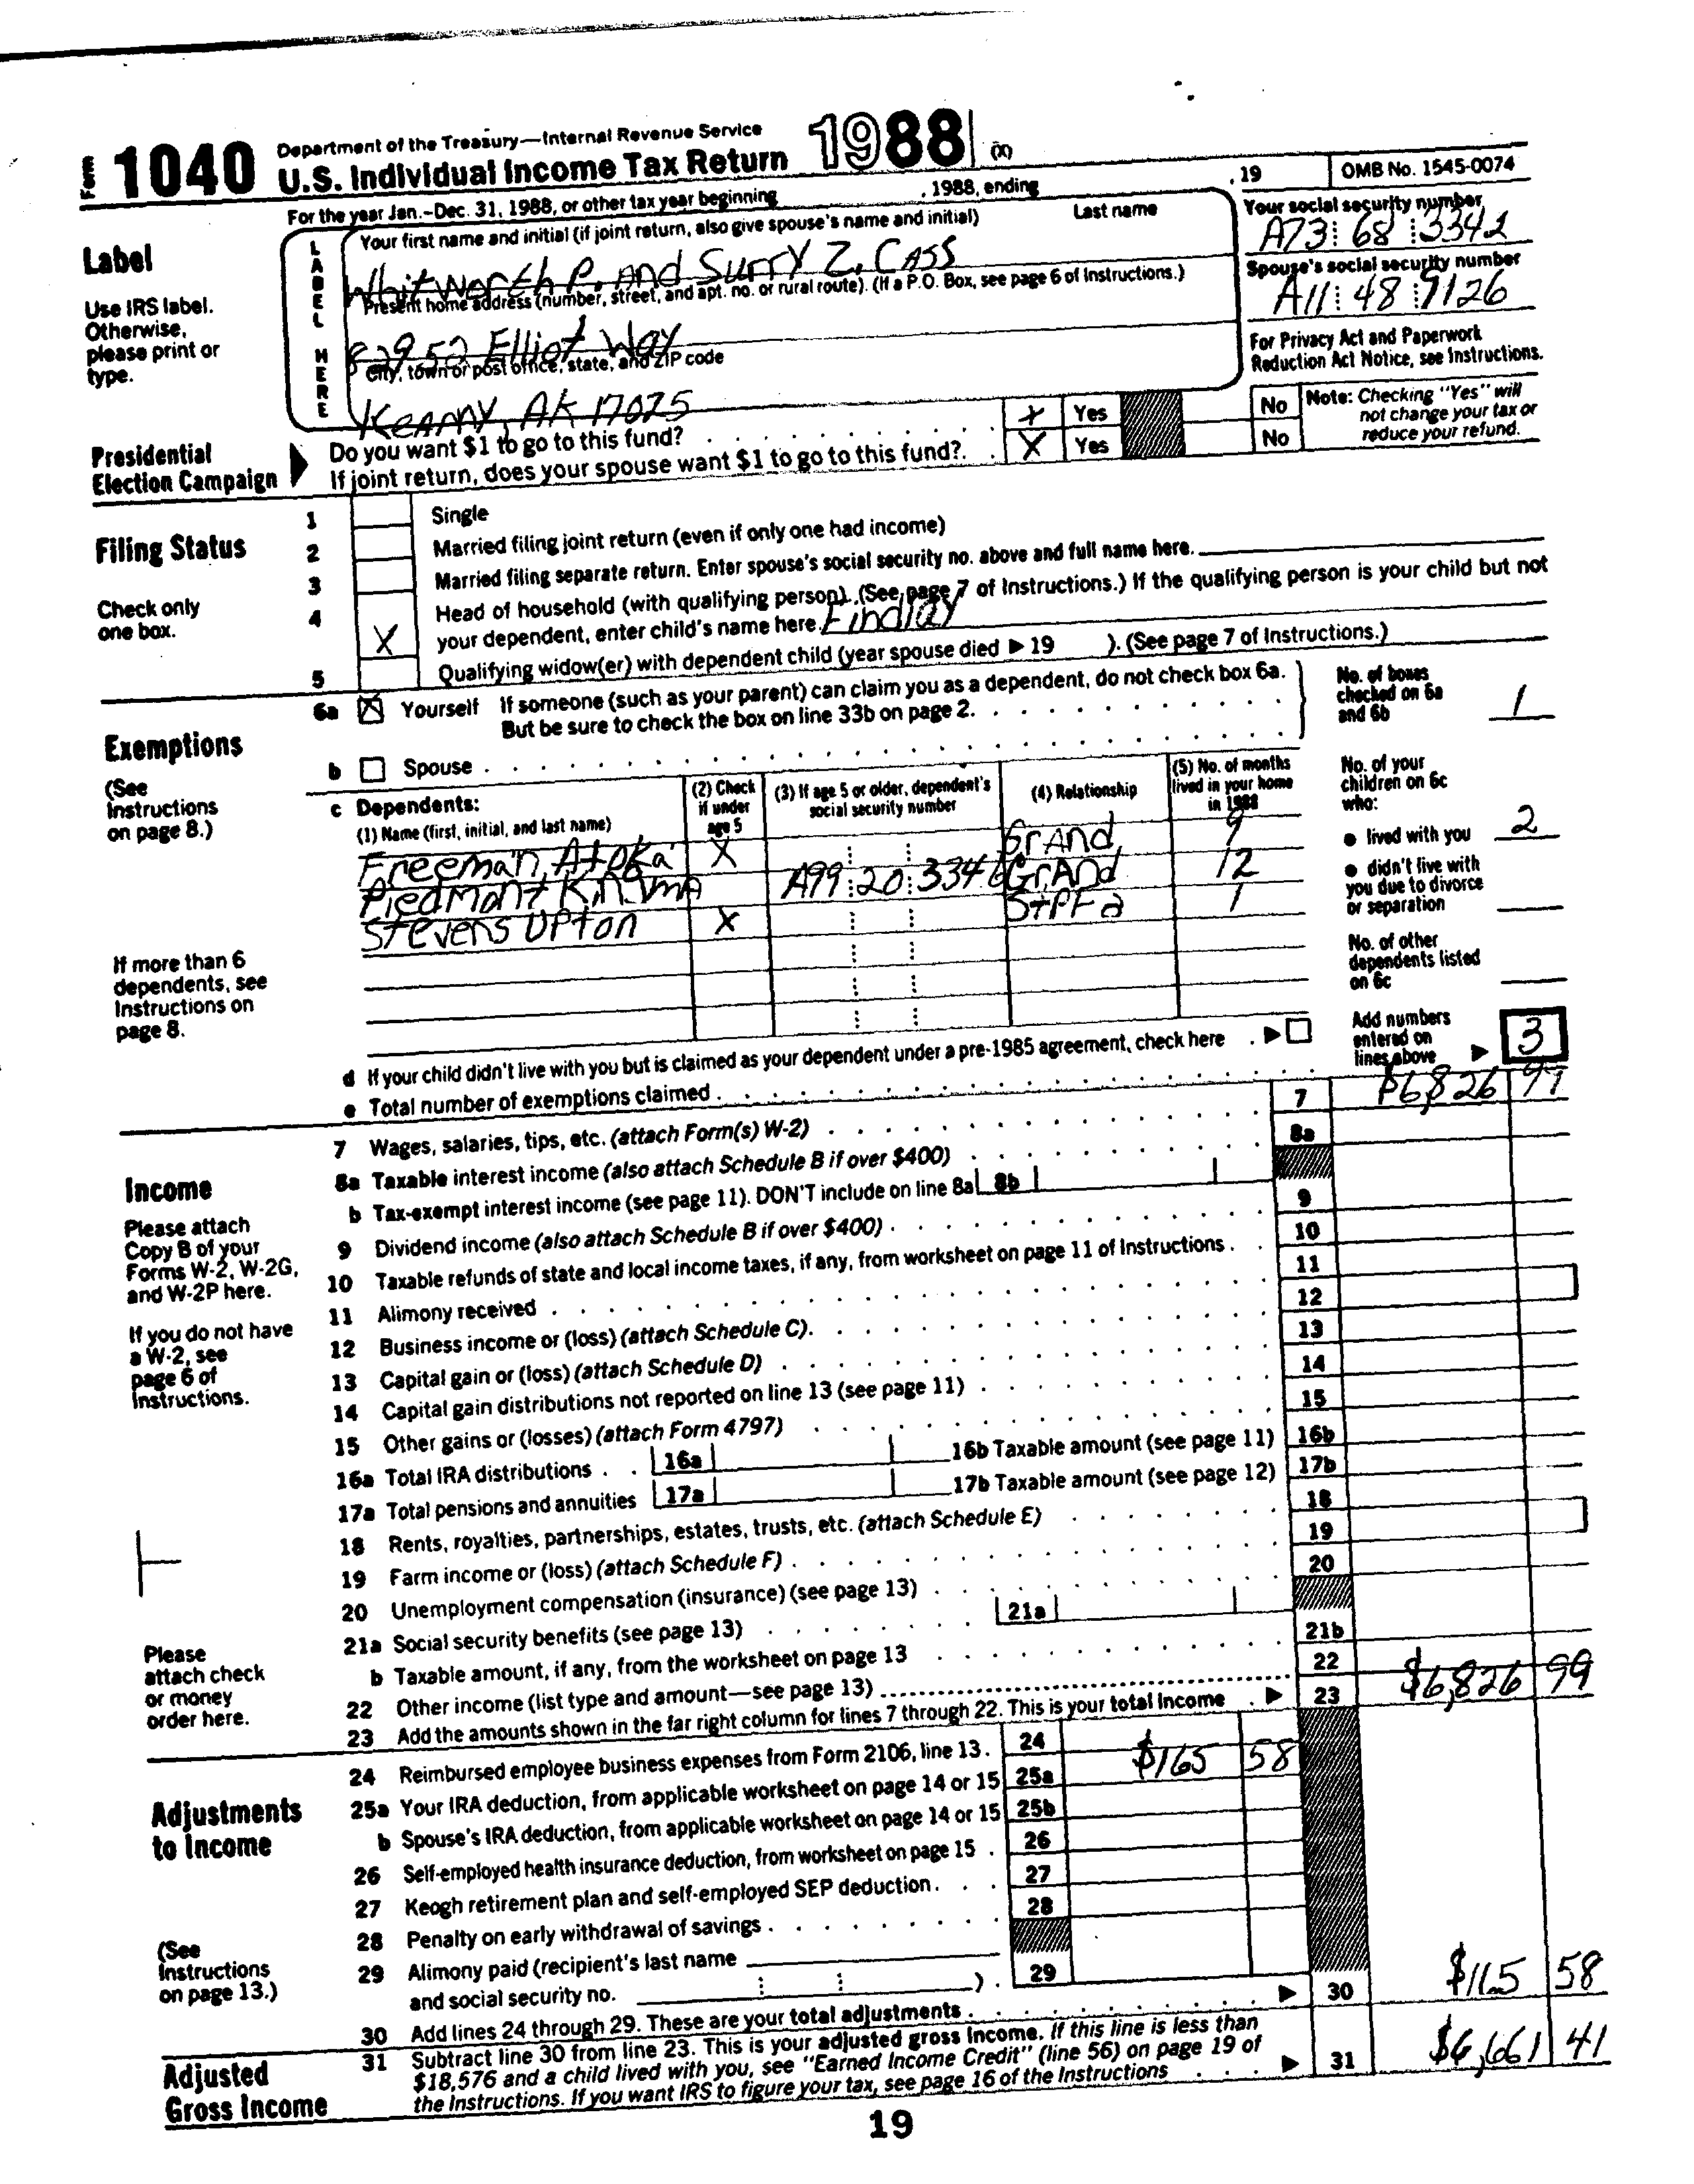 Form 1040 Department of the Treasury—Internal Revenue Service
U.S. Individual Income Tax Return 1988 (X)
For the year Jan.–Dec. 31, 1988, or other tax year beginning , 1988, ending , 19 OMB No. 1545-0074
Label
Use IRS label. Otherwise, please print or type.
LABEL HERE
Your first name and initial (if joint return, also give spouse's name and initial) Last name
Whitworth P. And Surry Z. CASS
Your social security number
A73 68 3342
Present home address (number, street, and apt. no. or rural route). (If a P.O. Box, see page 6 of Instructions.)
82952 Elliot Way
Spouse's social security number
A11 48 9126
City, town or post office, state, and ZIP code
Kearny, AK 17025
For Privacy Act and Paperwork Reduction Act Notice, see Instructions.
Presidential Election Campaign
Do you want $1 to go to this fund? X Yes No
If joint return, does your spouse want $1 to go to this fund? X Yes No
Note: Checking "Yes" will not change your tax or reduce your refund.
Filing Status
Check only one box.
1 Single
2 Married filing joint return (even if only one had income)
3 Married filing separate return. Enter spouse's social security no. above and full name here.
4 Head of household (with qualifying person). (See page 7 of Instructions.) If the qualifying person is your child but not
X your dependent, enter child's name here. Findlay
5 Qualifying widow(er) with dependent child (year spouse died ▶ 19 ). (See page 7 of Instructions.)
Exemptions
(See Instructions on page 8.)
6a X Yourself If someone (such as your parent) can claim you as a dependent, do not check box 6a.
But be sure to check the box on line 33b on page 2.
b Spouse
No. of boxes checked on 6a and 6b 1
c Dependents:
(1) Name (first, initial, and last name)
(2) Check if under age 5
(3) If age 5 or older, dependent's social security number
(4) Relationship
(5) No. of months lived in your home in 1988
Freeman, Atoka X Grand 9
Piedmont Kinma A99 20 3346 GrAnd 12
Stevens Upton X 1
No. of your children on 6c who:
● lived with you 2
● didn't live with you due to divorce or separation
No. of other dependents listed on 6c
If more than 6 dependents, see Instructions on page 8.
d If your child didn't live with you but is claimed as your dependent under a pre-1985 agreement, check here ▶
e Total number of exemptions claimed
Add numbers entered on lines above ▶ 3
Income
Please attach Copy B of your Forms W-2, W-2G, and W-2P here.
If you do not have a W-2, see page 6 of Instructions.
7 Wages, salaries, tips, etc. (attach Form(s) W-2) 7 $6,826 99
8a Taxable interest income (also attach Schedule B if over $400) 8a
b Tax-exempt interest income (see page 11). DON'T include on line 8a 8b
9 Dividend income (also attach Schedule B if over $400) 9
10 Taxable refunds of state and local income taxes, if any, from worksheet on page 11 of Instructions 10
11 Alimony received 11
12 Business income or (loss) (attach Schedule C) 12
13 Capital gain or (loss) (attach Schedule D) 13
14 Capital gain distributions not reported on line 13 (see page 11) 14
15 Other gains or (losses) (attach Form 4797) 15
16a Total IRA distributions 16a 16b Taxable amount (see page 11) 16b
17a Total pensions and annuities 17a 17b Taxable amount (see page 12) 17b
18 Rents, royalties, partnerships, estates, trusts, etc. (attach Schedule E) 18
19 Farm income or (loss) (attach Schedule F) 19
20 Unemployment compensation (insurance) (see page 13) 20
21a Social security benefits (see page 13) 21a
b Taxable amount, if any, from the worksheet on page 13 21b
22 Other income (list type and amount—see page 13) 22
23 Add the amounts shown in the far right column for lines 7 through 22. This is your total income ▶ 23 $6,826 99
Please attach check or money order here.
Adjustments to Income
(See Instructions on page 13.)
24 Reimbursed employee business expenses from Form 2106, line 13. 24 $165 58
25a Your IRA deduction, from applicable worksheet on page 14 or 15 25a
b Spouse's IRA deduction, from applicable worksheet on page 14 or 15 25b
26 Self-employed health insurance deduction, from worksheet on page 15 26
27 Keogh retirement plan and self-employed SEP deduction 27
28 Penalty on early withdrawal of savings 28
29 Alimony paid (recipient's last name
and social security no. ) 29
30 Add lines 24 through 29. These are your total adjustments ▶ 30 $165 58
Adjusted Gross Income
31 Subtract line 30 from line 23. This is your adjusted gross income. If this line is less than
$18,576 and a child lived with you, see "Earned Income Credit" (line 56) on page 19 of
the Instructions. If you want IRS to figure your tax, see page 16 of the Instructions ▶ 31 $6,661 41
19